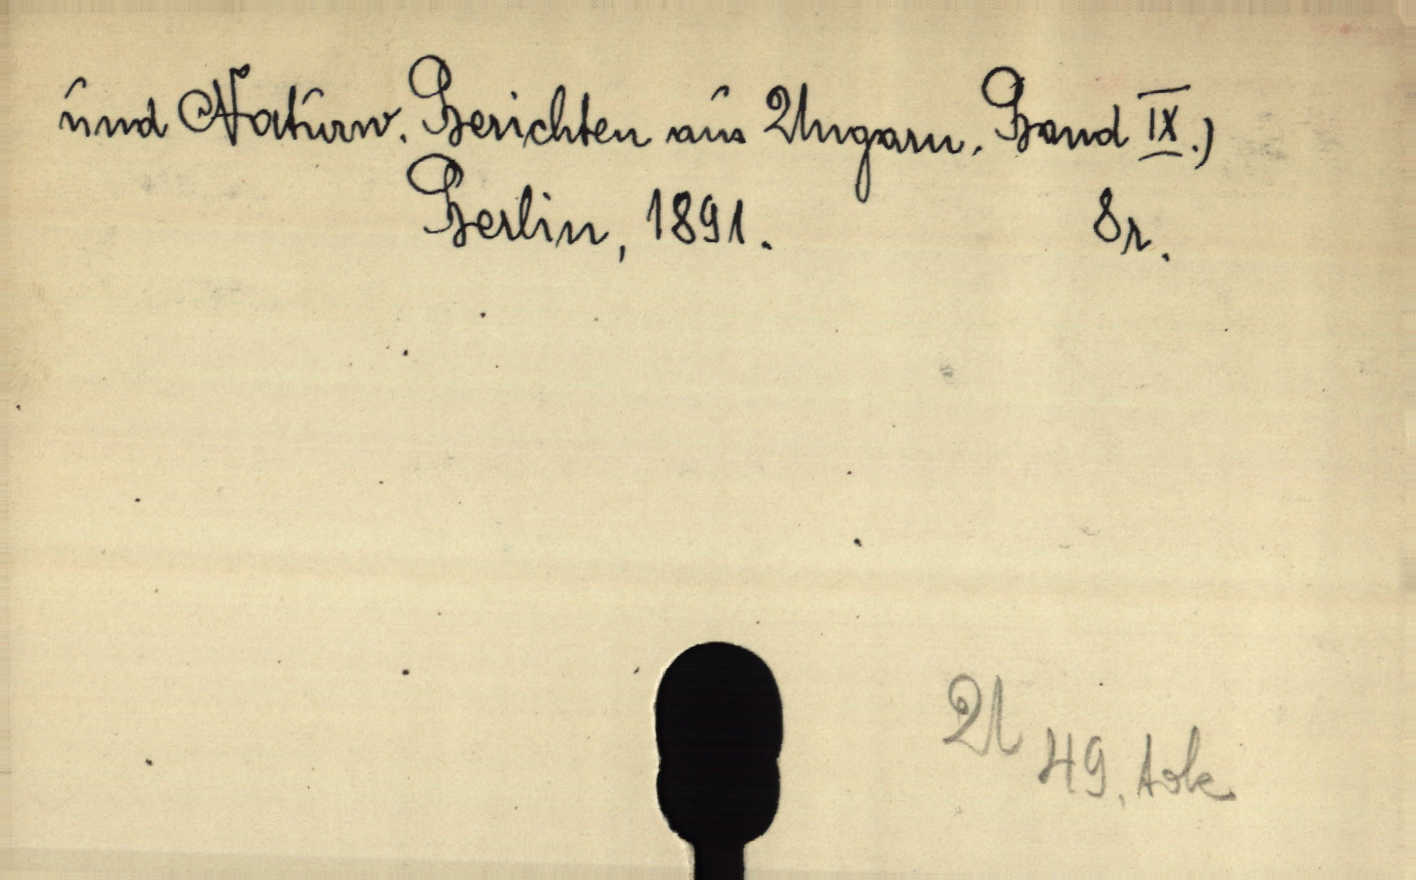 und Naturw. Berichten aus Ungarn. Band IX.)
Berlin, 1891. 8r.
U 49. tok